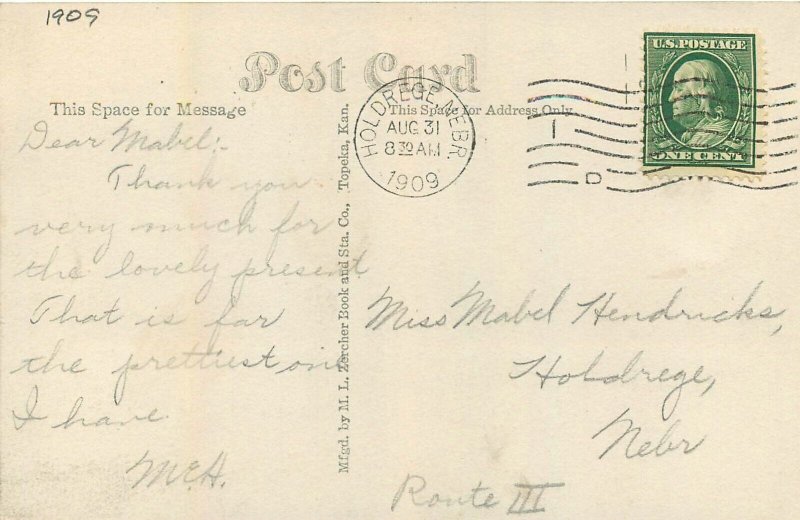 1909
Post Card
This Space for Message
This Space for Address Only
U.S. POSTAGE
ONE CENT
HOLDREGE, NEBR.
AUG 31
8 30 AM
1909
1
D
Dear Mabel:-
Thank you
very much for
the lovely present
That is far
the prettiest one
I have.
McH.
Mfgd. by M. L. Zercher Book and Sta. Co., Topeka, Kan.
Miss Mabel Hendricks,
Holdrege,
Nebr
Route III